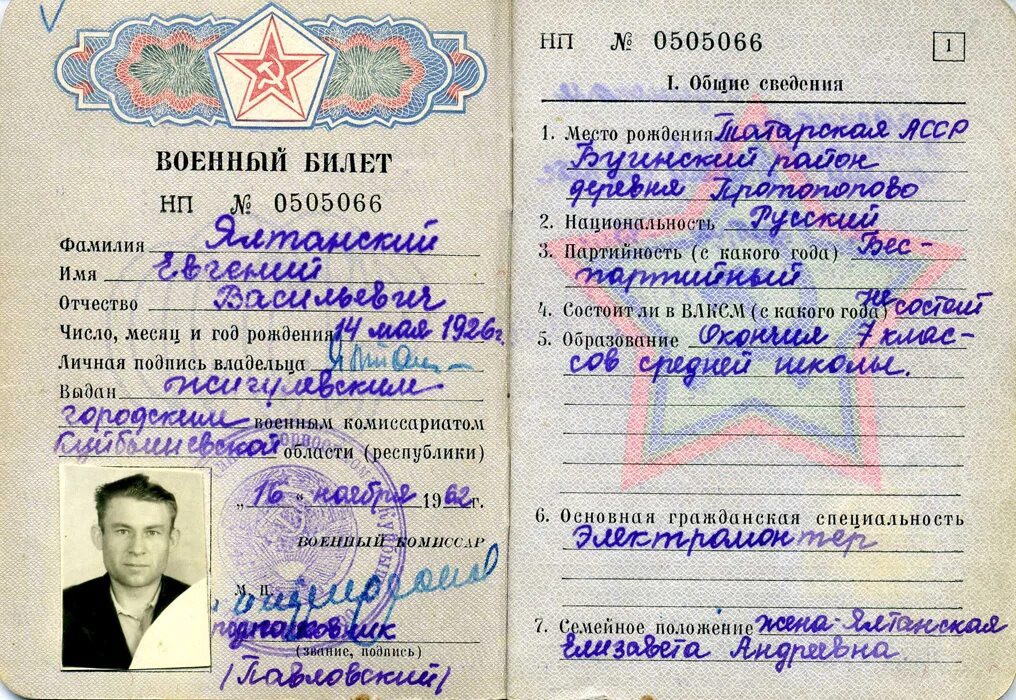 ВОЕННЫЙ БИЛЕТ
НП № 0505066
Фамилия Ялтанский
Имя Евгений
Отчество Васильевич
Число, месяц и год рождения 14 мая 1926г.
Личная подпись владельца
Выдан Жигулевским
городским военным комиссариатом
Куйбышевской области (республики)
„16“ ноября 1962г.
ВОЕННЫЙ КОМИССАР
М. П.
подполковник
(звание, подпись)
(Павловский)
НП № 0505066
1
I. Общие сведения
1. Место рождения Татарская АССР
Буинский район
деревня Протопопово
2. Национальность Русский
3. Партийность (с какого года) Бес-
партийный
4. Состоит ли в ВЛКСМ (с какого года) Не состоит
5. Образование Окончил 7 клас-
сов средней школы.
6. Основная гражданская специальность
Электромонтер
7. Семейное положение жена-Ялтанская
Елизавета Андреевна.